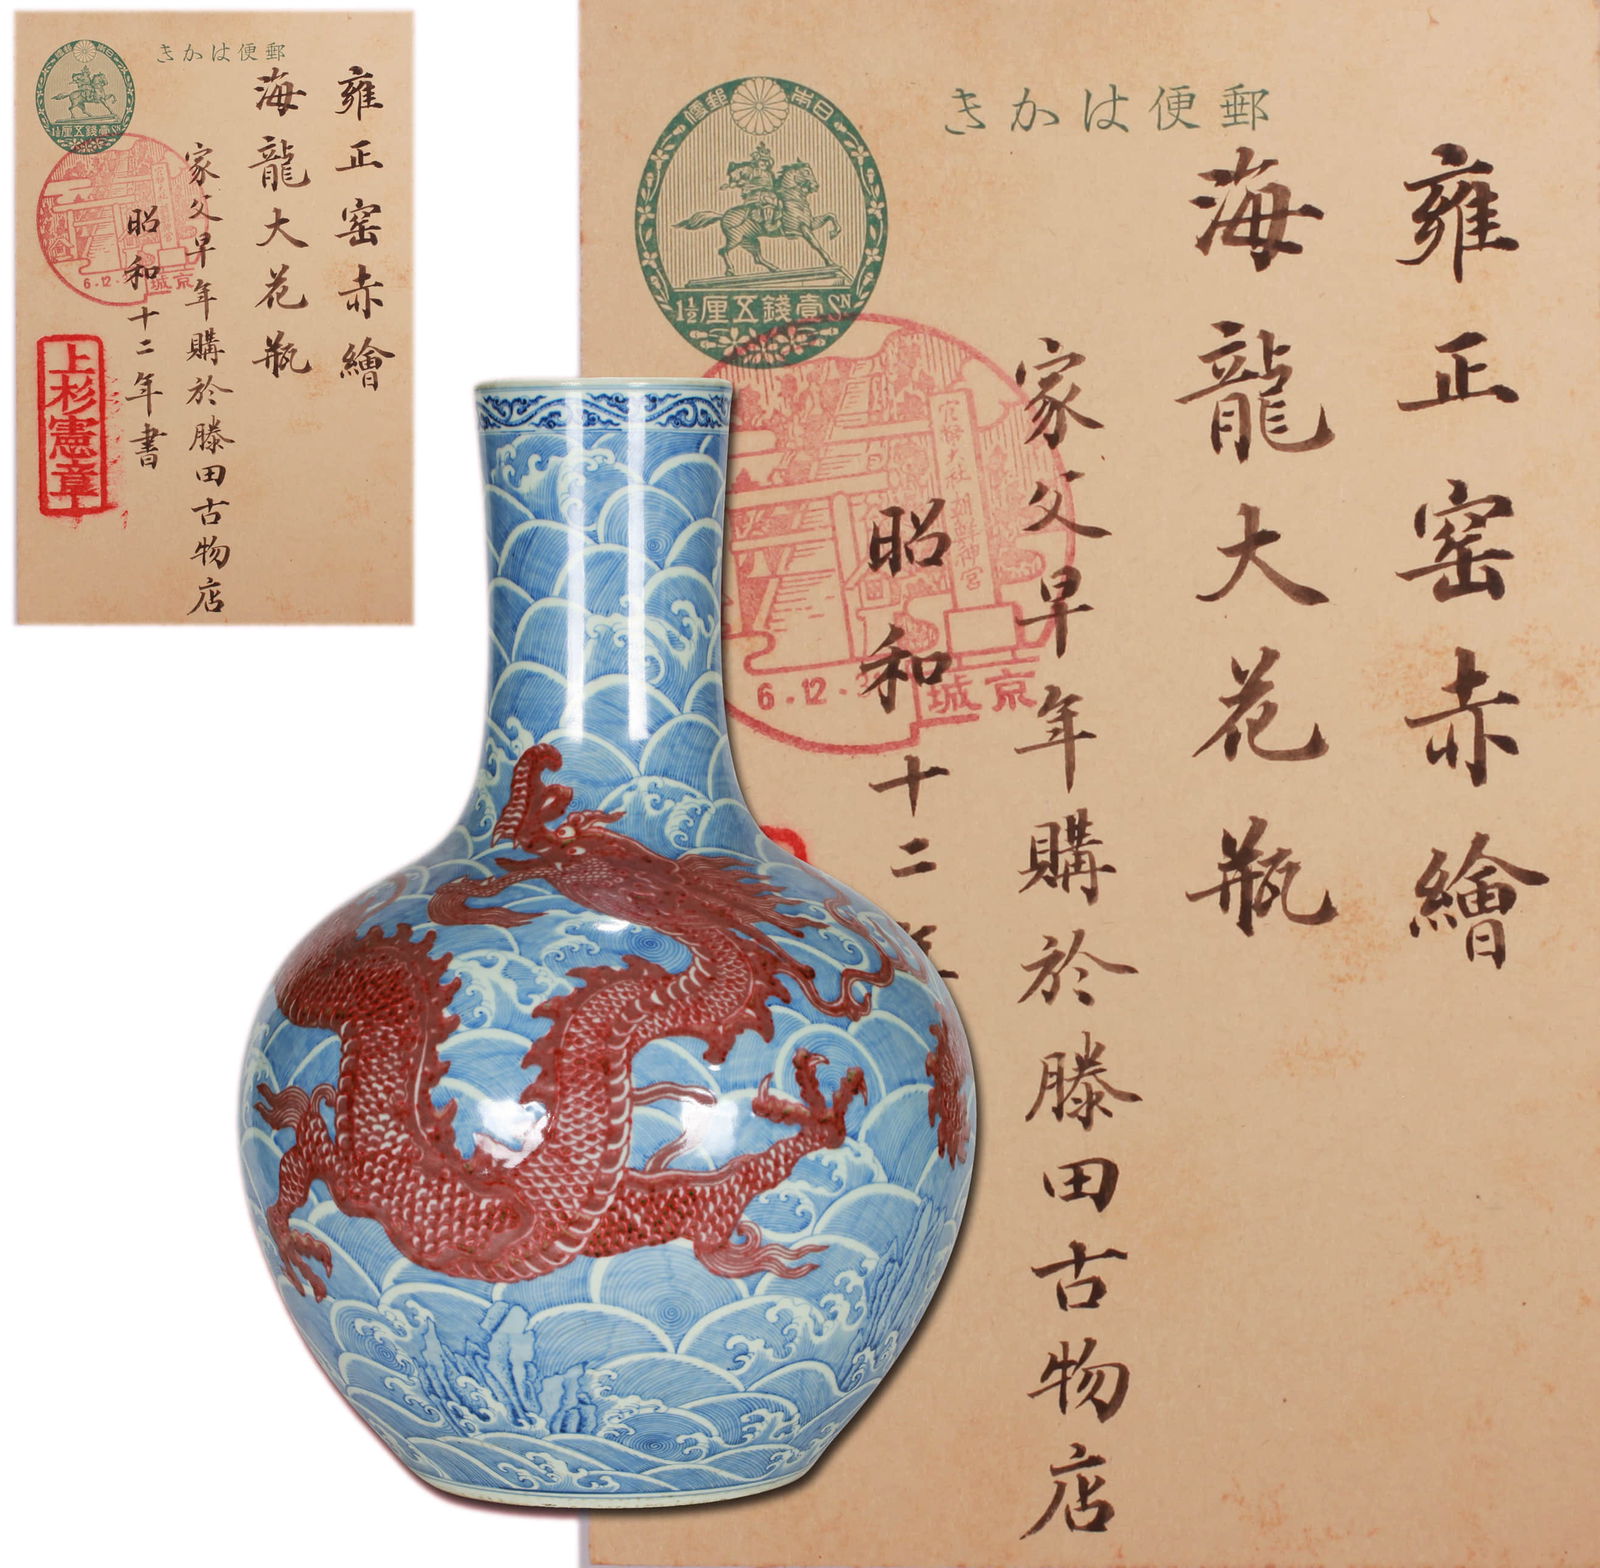 郵便はかき
日本郵便
壹錢五厘
1½ SN
雍正窑赤繪
海龍大花瓶
家父早年購於滕田古物店
昭和十二年書
京城
6.12.
上杉憲章
郵便はかき
日本郵便
壹錢五厘
1½ SN
雍正窑赤繪
海龍大花瓶
家父早年購於滕田古物店
昭和十二年
官幣大社 朝鮮神宮
京城
6.12.